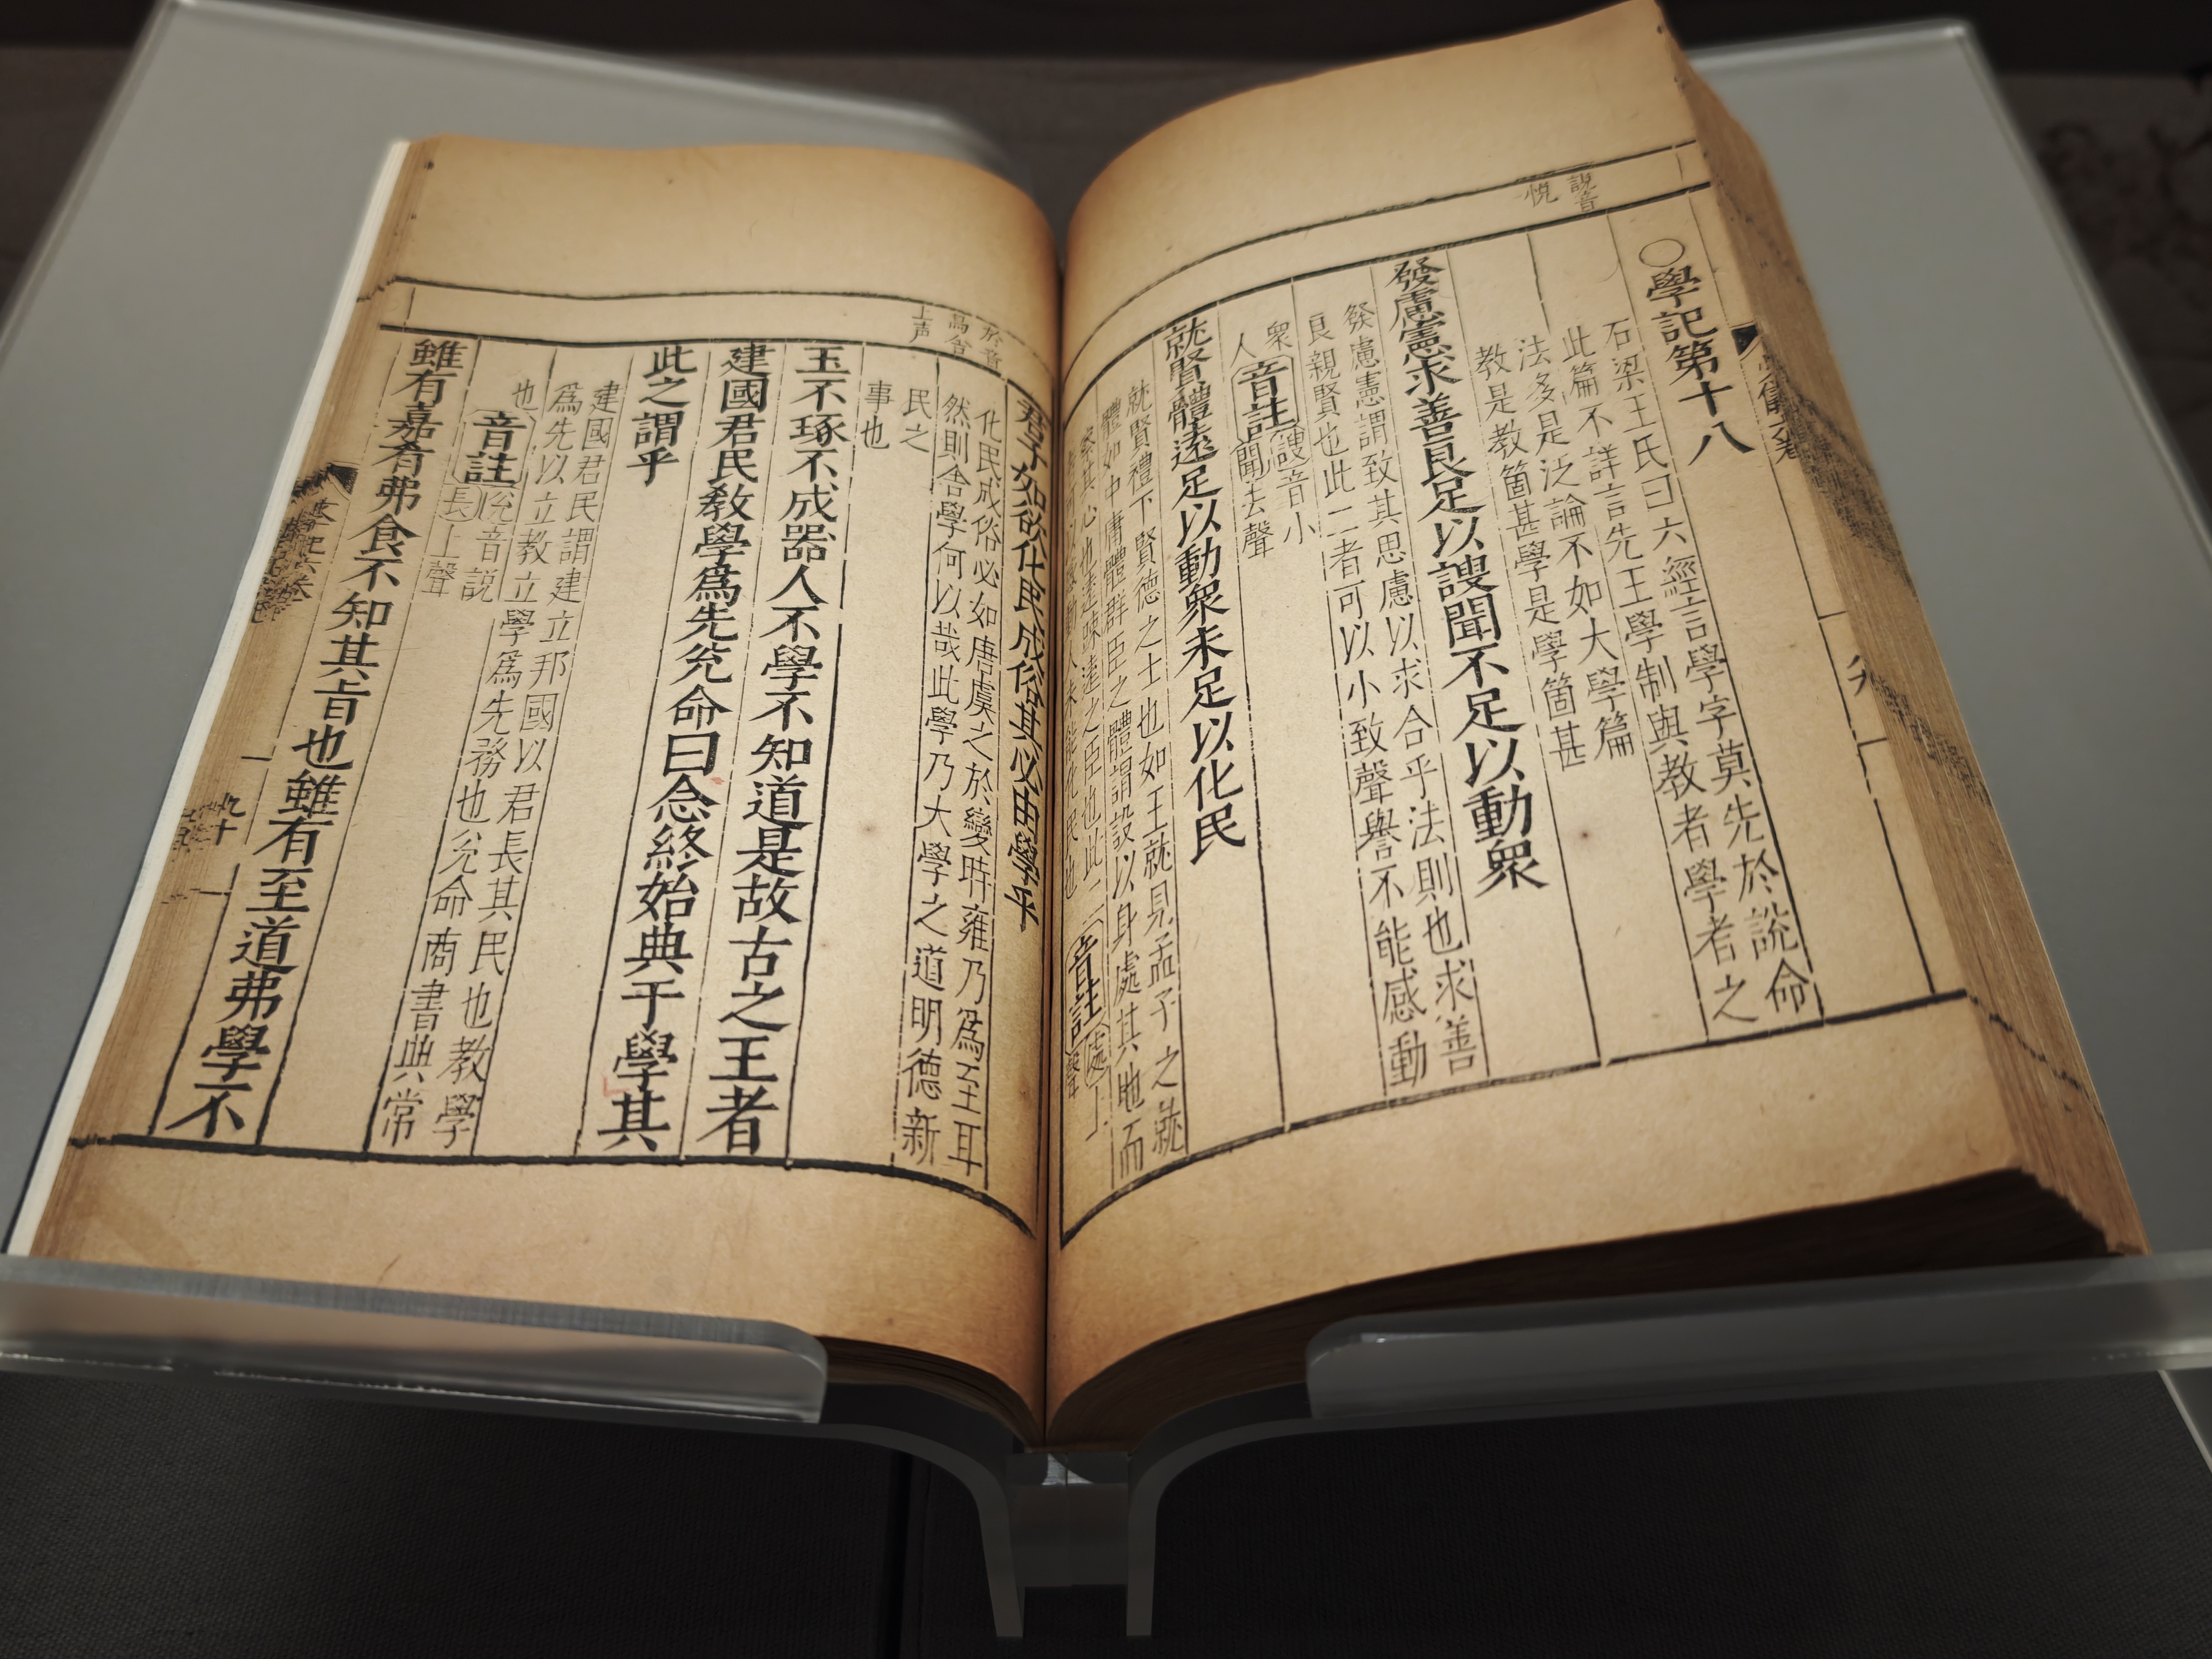 說音
悅
○學記第十八
石梁王氏曰六經言學字莫先於說命
此篇不詳言先王學制與教者學者之
法多是泛論不如大學篇
教是教箇甚學是學箇甚
發慮憲求善良足以謏聞不足以動衆
發慮憲謂致其思慮以求合乎法則也求善
良親賢也此二者可以小致聲譽不能感動
衆
人
音註
謏音小
聞去聲
就賢體遠足以動衆未足以化民
就賢禮下賢德之士也如王就見孟子之就
體如中庸體群臣之體謂設以身處其地而
音註
處上
聲
於音
烏舍
上声
君子如欲化民成俗其必由學乎
化民成俗必如唐虞之於變時雍乃爲至耳
然則舍學何以哉此學乃大學之道明德新
民之
事也
玉不琢不成器人不學不知道是故古之王者
建國君民教學爲先兊命曰念終始典于學其
此之謂乎
建國君民謂建立邦國以君長其民也教學
爲先以立教立學爲先務也兊命商書典常
也
音註
兊音說
長上聲
雖有嘉肴弗食不知其旨也雖有至道弗學不